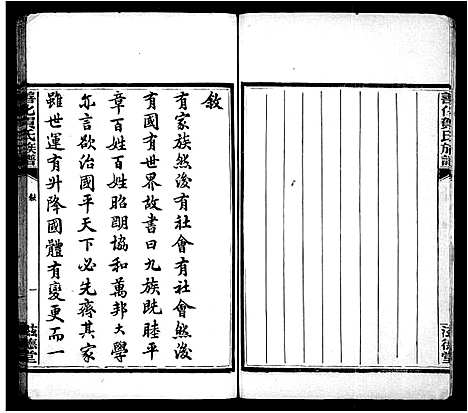 敘
有家族然後有社會有社會然後
有國有世界故書曰九族既睦平
章百姓百姓昭朙協和萬邦大學
亦言欲治國平天下必先齊其家
雖世運有升降國體有變更而一
善化賀氏族譜
敘
一
滋德堂
善化賀氏族譜
滋德堂